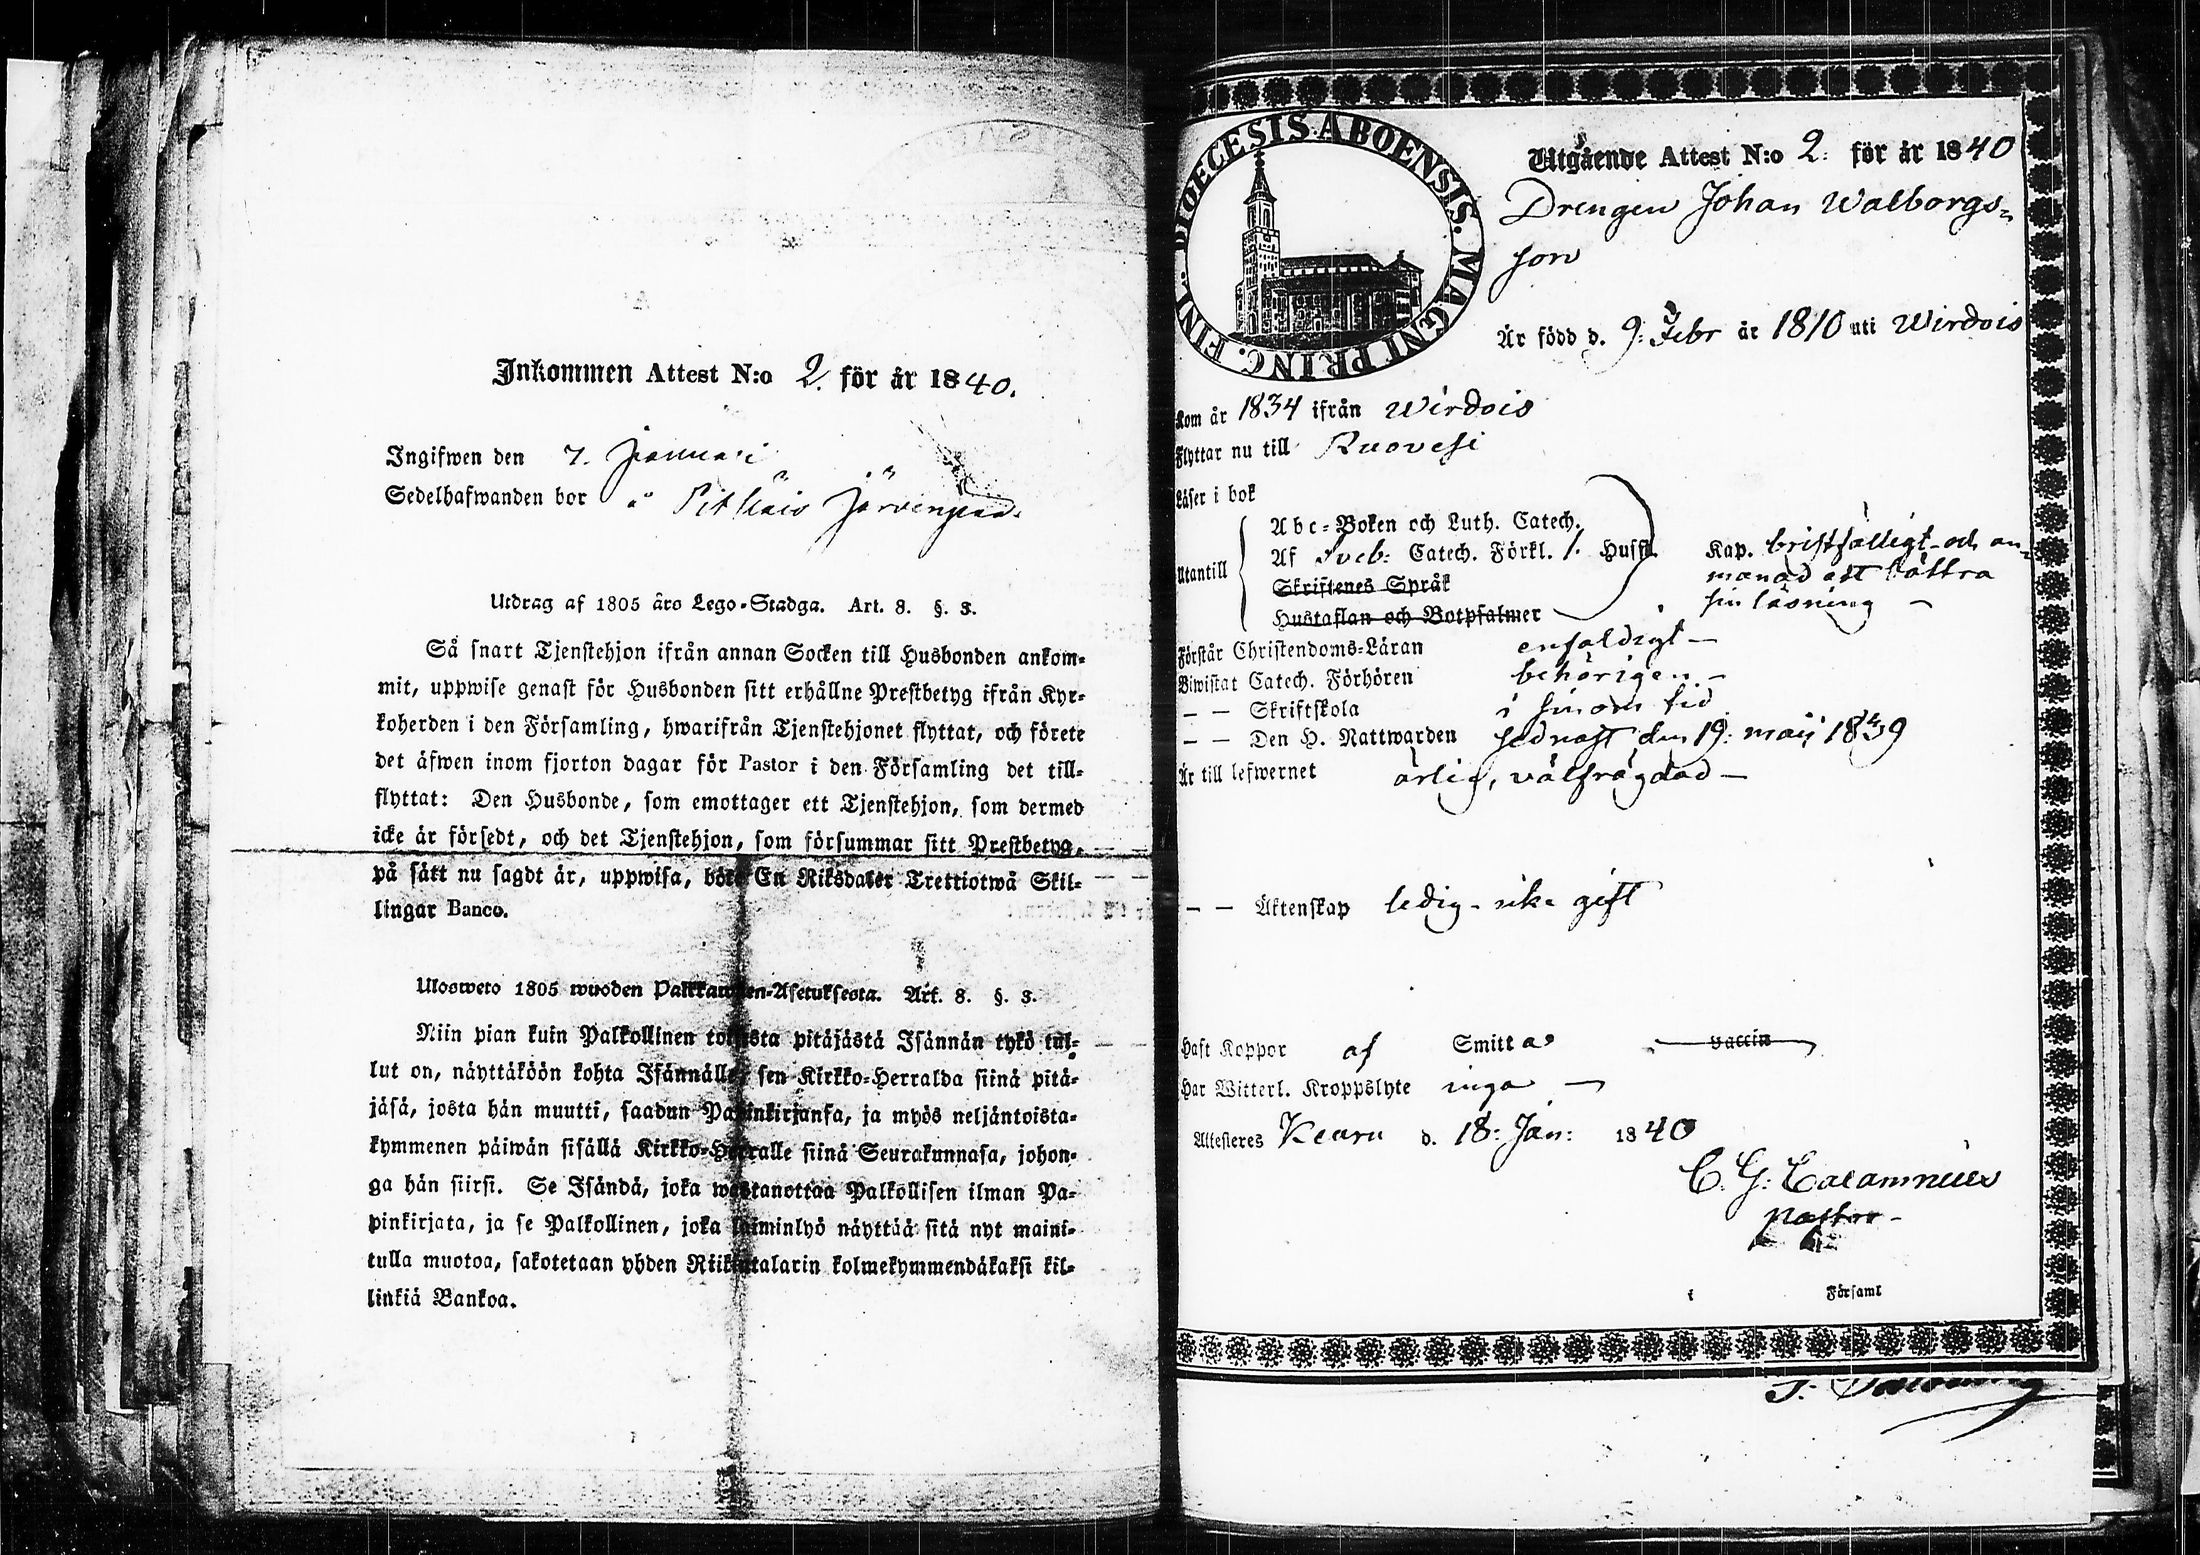 Inkommen Attest N:o 2. för år 1840.
Ingifwen den 7. Januari
Sedelhafwanden bor å Pitkäis Järvenpää.
Utdrag af 1805 års Lego-Stadga. Art. 8. §. 3.
Så snart Tjenstehjon ifrån annan Socken till Husbonden ankom-
mit, uppwise genast för Husbonden sitt erhållne Prestbetyg ifrån Kyr-
koherden i den Församling, hwarifrån Tjenstehjonet flyttat, och förete
det äfwen inom fjorton dagar för Pastor i den Församling det till-
flyttat: Den Husbonde, som emottager ett Tjenstehjon, som dermed
icke är försedt, och det Tjenstehjon, som försummar sitt Prestbetyg,
på sätt nu sagdt är, uppwisa, böte En Riksdaler Trettiotwå Skil-
lingar Banco.
Ulosweto 1805 wuoden Palkkawäen-Asetuksesta. Art. 8. §. 3.
Niin pian kuin Palkollinen toisesta pitäjästä Isännän tykö tul-
lut on, näyttäköön kohta Isännälle, sen Kirkko-Herralda siinä pitä-
jäsä, josta hän muutti, saadun Papinkirjansa, ja myös neljäntoista-
kymmenen päiwän sisällä Kirkko-Herralle siinä Seurakunnasa, johon-
ga hän siirsi. Se Isändä, joka wastanottaa Palkollisen ilman Pa-
pinkirjata, ja se Palkollinen, joka laiminlyö näyttää sitä nyt maini-
tulla muotoa, sakotetaan yhden Riikintalarin kolmekymmendäkaksi kil-
linkiä Bankoa.
DIOECESIS ABOENSIS. MAGNI PRINC. FINL.
Utgående Attest N:o 2. för år 1840
Drengen Johan Walborgs-
son
Är född d. 9: Febr år 1810 uti Wirdois
Kom år 1834 ifrån Wirdois
Flyttar nu till Ruovesi
Läser i bok
Utantill
Abc-Boken och Luth. Catech.
Af Sveb: Catech. Förkl. 1. Husst. Kap. bristfälligt och an-
Skriftenes Språk manad att bättra
Hustaflan och Botpsalmer sin läsning –
Förstår Christendoms-Läran enfaldigt –
Biwistat Catech. Förhören behörigen –
– – Skriftskola i sinom tid
– – Den H. Nattwarden sednast den 19: maij 1839
Är till lefwernet ärlig, välfrägdad –
– – Äktenskap ledig - icke gift
Haft Koppor af Smitta vaccin
Har Witterl. Kroppslyte inga –
Attesteres Keuru d. 18: Jan: 1840
C. G: Calamnius
Pastor –
i Församl